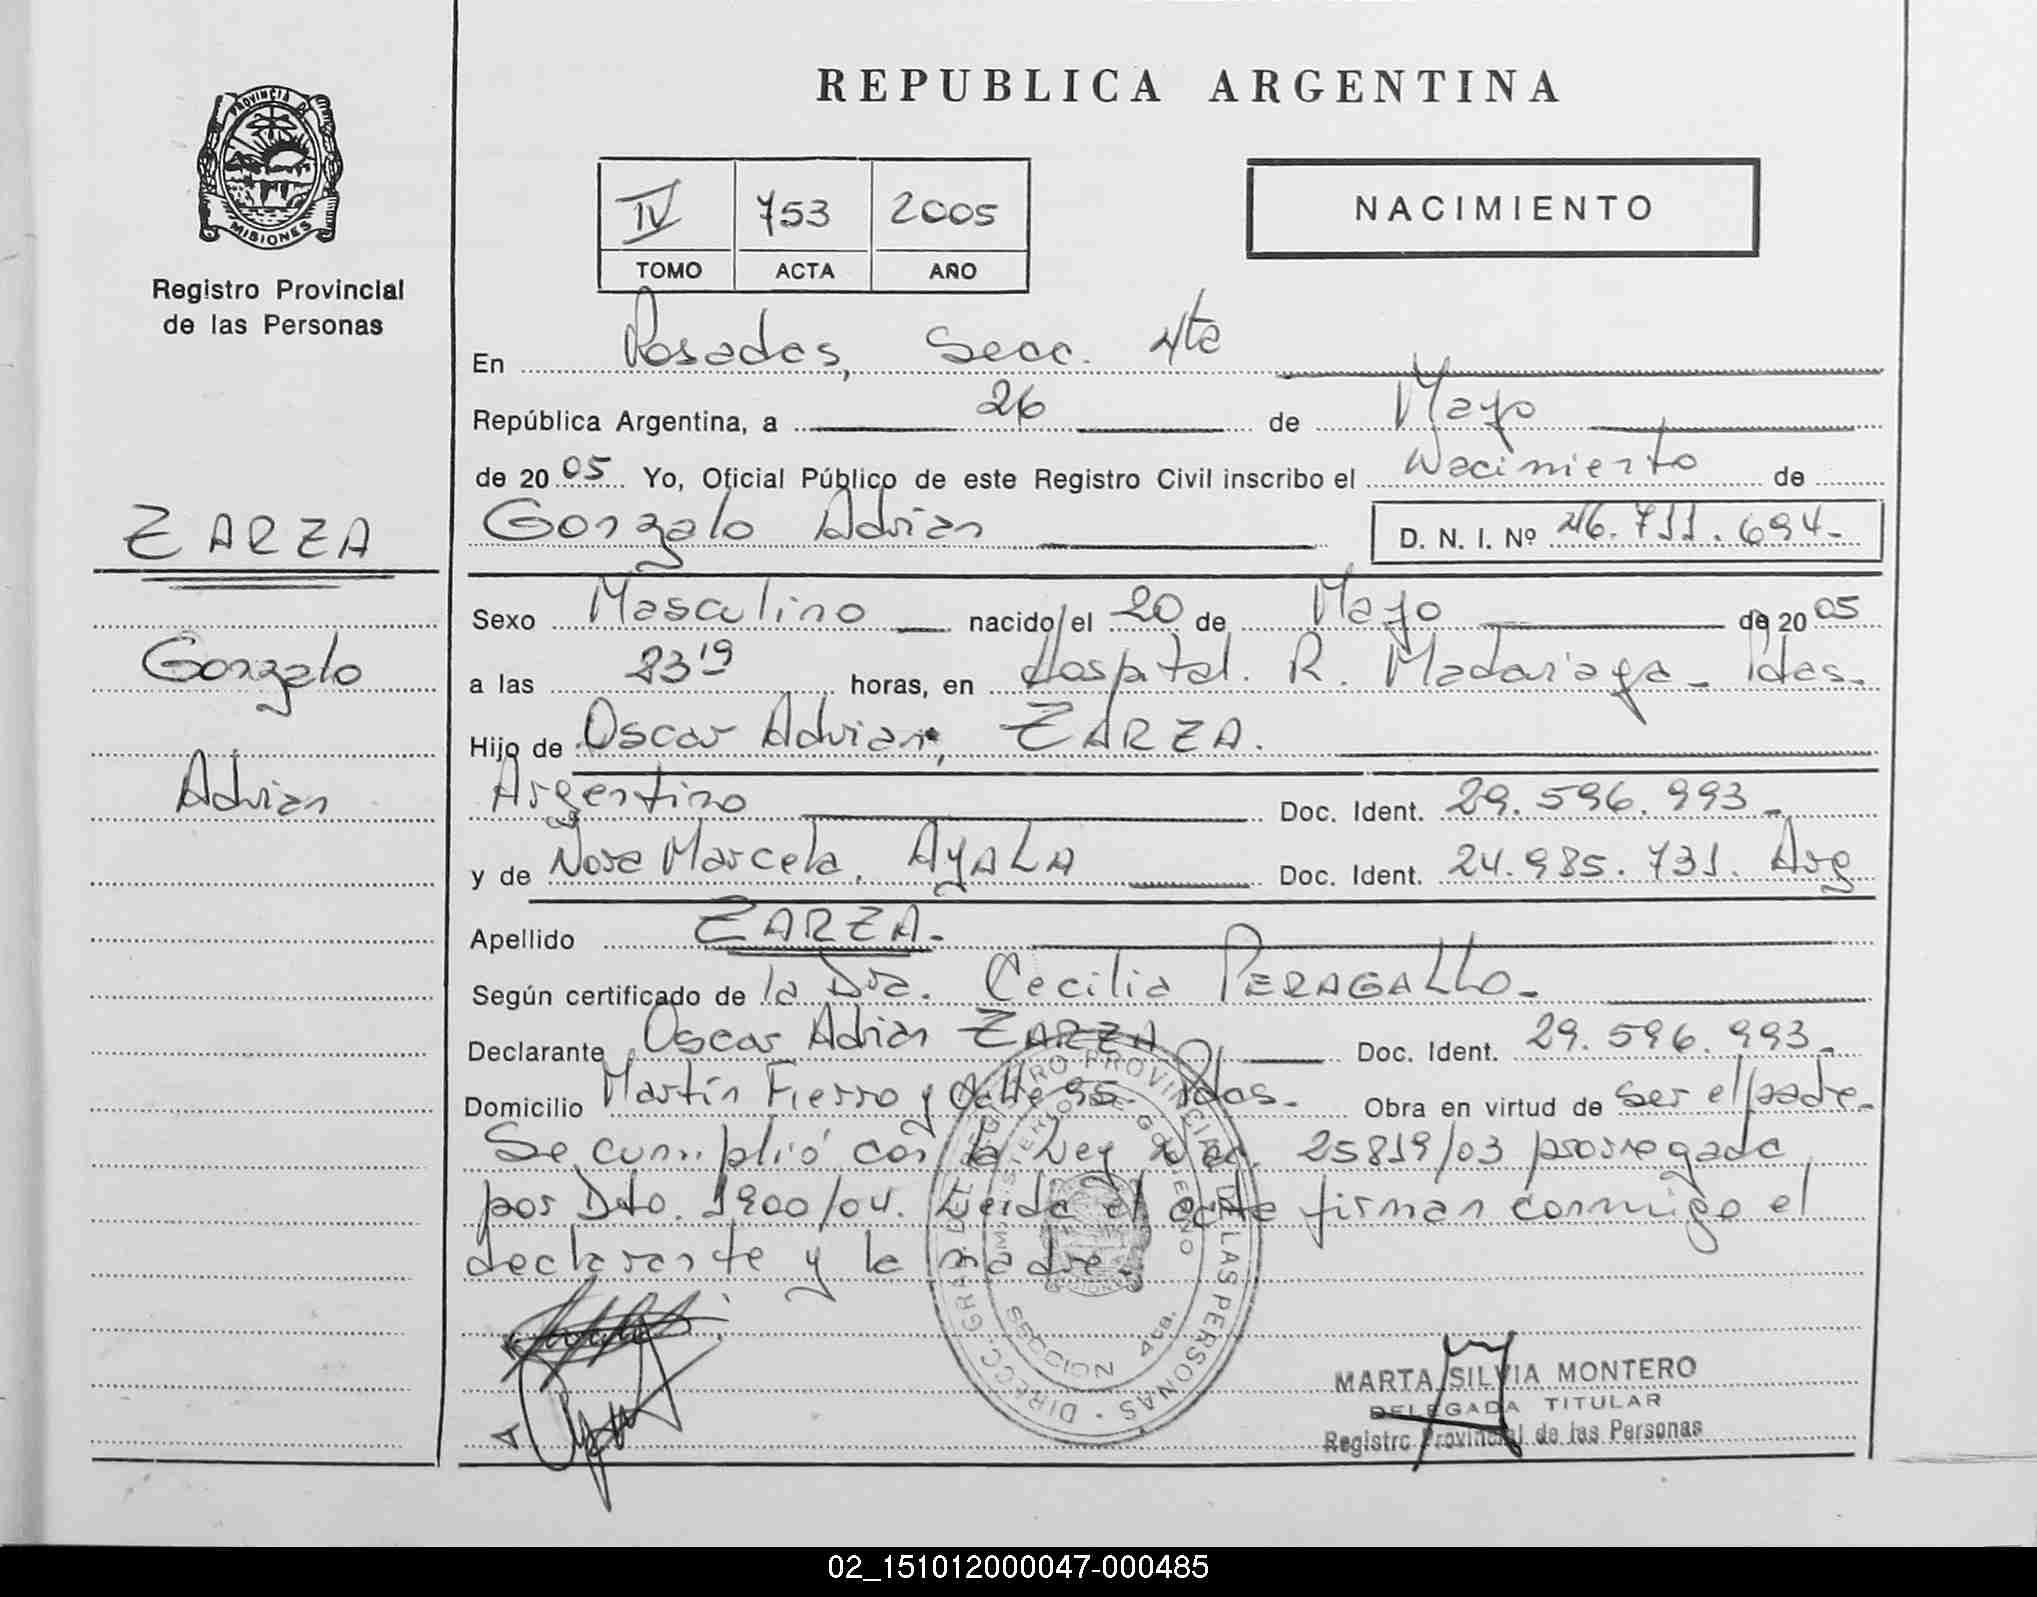 PROVINCIA DE
MISIONES
Registro Provincial
de las Personas
ZARZA
Gonzalo
Adrian
REPUBLICA ARGENTINA
IV 753 2005
TOMO ACTA AÑO
NACIMIENTO
En Posadas, Secc. 4ta
República Argentina, a 26 de Mayo
de 2005 Yo, Oficial Público de este Registro Civil inscribo el Nacimiento de
Gonzalo Adrian D. N. I. Nº 46.711.694.-
Sexo Masculino nacido el 20 de Mayo de 2005
a las 23 19 horas, en Hospital. R. Madariaga - Pdas.-
Hijo de Oscar Adrian, ZARZA.
Argentino Doc. Ident. 29.596.993.-
y de Nora Marcela, AYALA Doc. Ident. 24.985.731. Arg
Apellido ZARZA.-
Según certificado de la Dra. Cecilia PERAGALLO.-
Declarante Oscar Adrian ZARZA Doc. Ident. 29.596.993.-
Domicilio Martín Fierro y Calle 95. Pdas.- Obra en virtud de ser el padre.-
Se cumplió con la Ley Nac. 25819/03 prorrogada
por Dto. 1900/04. Leida el acta firman conmigo el
declarante y la madre.
DIRECC. GRAL. DEL REGISTRO PROVINCIAL DE LAS PERSONAS
MINISTERIO DE GOBIERNO
SECCION 4ta.
MARTA SILVIA MONTERO
DELEGADA TITULAR
Registro Provincial de las Personas
02_151012000047-000485